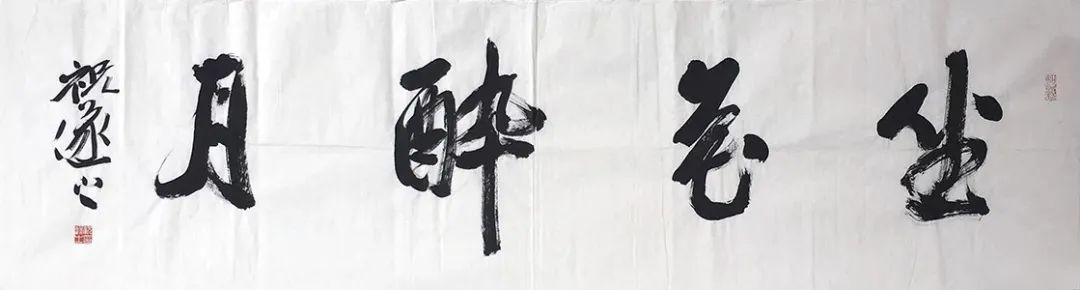 坐花醉月
祝遂之